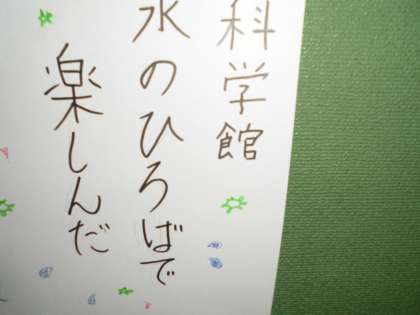 科学館
水のひろばで
楽しんだ